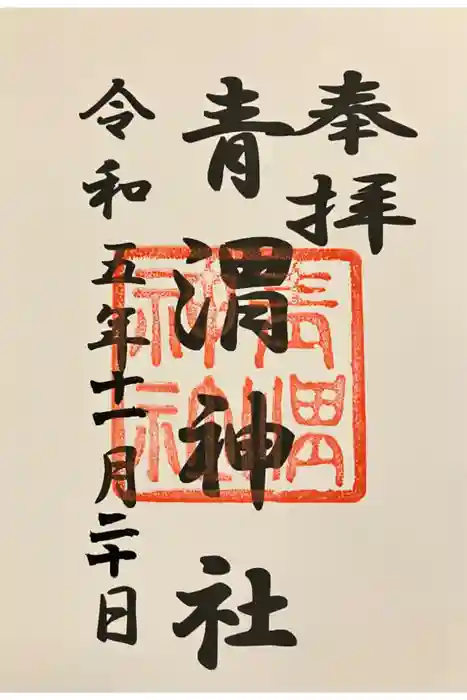 奉拝
青渭神社
令和五年十一月二十日
青渭神社